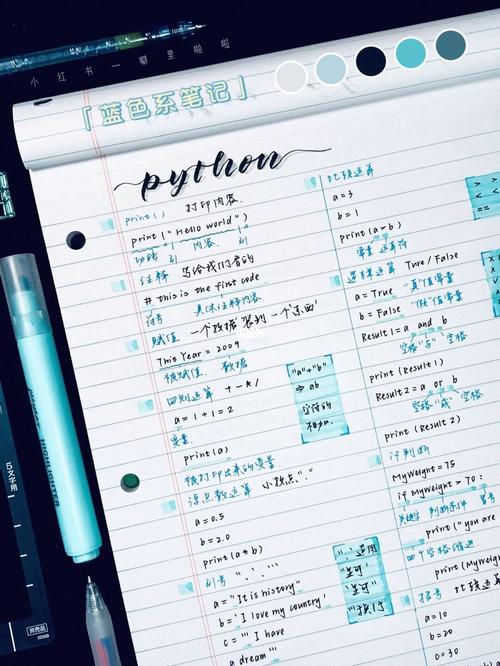 小红书一噼里啪啦
「蓝色系笔记」
python
print() 打印内容
print("Hello world")
功能 引 内容 引
注释 写给我们看的
# this is the first code
符号 具体注释内容
赋值 一个"数据"装到一个"东西"
This Year = 2009
被赋值 数据
四则运算 + - * /
a = 1 + 1 = 2
变量
print(a)
被打印出来的变量
浮点数运算 小数点"."
a = 0.5
b = 2.0
print(a*b)
引号
a = "It is history"
b = 'I love my country,'
c = ''' I have
a dream '''
"a"+"b"
⇒ ab
字符的
相加
通用
换行
比较运算
a = 3
b = 1
print(a>b)
变量 运算符
逻辑运算 Ture / False
a = True "真"值常量
b = False "假"值常量
Result1 = a and b
空格"与"空格
print(Result1)
Result2 = a or b
空格"或"空格
print(Result2)
if判断
MyWeight = 75
if MyWeight > 70 :
关键字 判断条件 冒号
print("you are
四个空格缩进
print(MyWeigh
括号 比较运
a = 10
b = 20
c = 30
> <
==
5文字用
HIGHLIGHTER
非売品